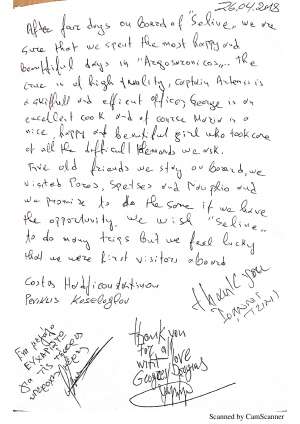 26.04.2018
After four days on board of "Selive", we are
sure that we spent the most happy and
beautiful days in "Argosaronicos"... The
crew is of high quality, captain Antonis is
a skilfull and efficent officer, George is an
excellent cook and of course Maria is a
nice, happy and beautiful girl who took care
of all the difficult demands we ask.
Five old friends we stay on board, we
visited Poros, Spetses and Nauplio and
we promise to do the same if we have
the opportunity. We wish "Selive"
to do many trips but we feel lucky
that we were first visitors aboard
Costas
thank you
Thank you
for a
with love
George
ΕΥΧΑΡΙΣΤΩ
Scanned by CamScanner